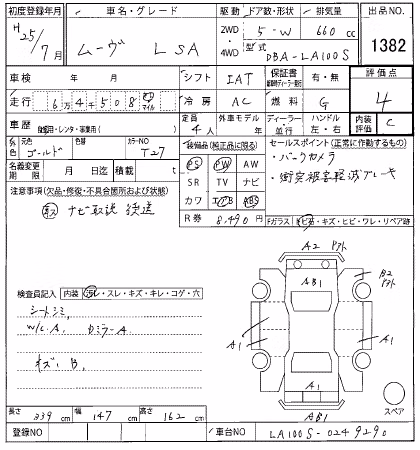 初度登録年月 車名・グレード 駆動 ドア数・形状 排気量 出品NO
H25/7月 ムーヴ L SA 2WD 4WD 5-W 660cc 1382
型式 DBA-LA100S
車検 年 月 シフト IAT 保証書 有・無 評価点
走行 6万4千508 マイル 冷房 AC 燃料 G 4
車歴 自家用・レンタ・事業用( ) 定員 4人 外車モデル 年 ディーラー 並行 ハンドル 左・右 内装評価 C
元色 ゴールド 色替 カラーNO T27
装備品(純正品に限る) セールスポイント(正常に作動するもの)
名義変更期限 月 日 積載 t
PS PW AW ・バックカメラ
SR TV ナビ ・衝突被害軽減ブレーキ
カワ エアB ABS
注意事項(欠品・修復・不具合箇所および状態)
ナビ取説 後送
R券 8,490円 Fガラス 飛石・キズ・ヒビ・ワレ・リペア跡
A2
AB1
B2
検査員記入 内装 汚レ・スレ・キズ・キレ・コゲ・穴
シートシミ
W/C.A. カミラーA.
キズ、B.
A1
A1
A1
AB1
スペア
長さ 339cm 幅 147cm 高さ 162cm
登録NO 車台NO LA100S-0249290